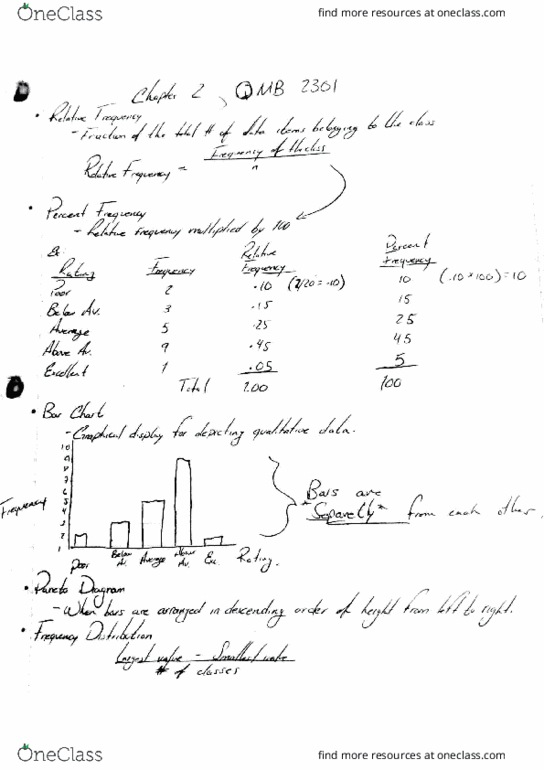 OneClass find more resources at oneclass.com
Chapter 2, QMB 2301
• Relative Frequency
- Fraction of the total # of data items belonging to the class
Relative Frequency = Frequency of the class
n
• Percent Frequency
- Relative frequency multiplied by 100
Ex:
Rating Frequency Relative Frequency Percent Frequency
Poor 2 .10 (2/20 = .10) 10 (.10 x 100) = 10
Below Av. 3 .15 15
Average 5 .25 25
Above Av. 9 .45 45
Excellent 1 .05 5
Total 1.00 100
• Bar Chart
- Graphical display for depicting qualitative data.
10
9
8
7
6
5
4
3
2
1
Frequency
Poor Below Av. Average Above Av. Ex. Rating.
Bars are
*Separetly* from each other.
• Pareto Diagram
- When bars are arranged in descending order of height from left to right.
• Frequency Distribution
Largest value - Smallest value
# of classes
OneClass find more resources at oneclass.com